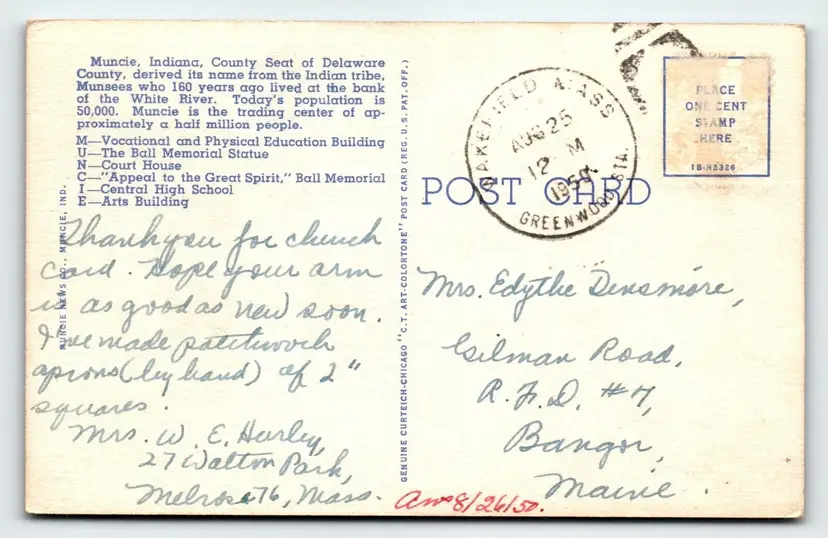 Muncie, Indiana, County Seat of Delaware
County, derived its name from the Indian tribe,
Munsees who 160 years ago lived at the bank
of the White River. Today's population is
50,000. Muncie is the trading center of ap-
proximately a half million people.
M—Vocational and Physical Education Building
U—The Ball Memorial Statue
N—Court House
C—"Appeal to the Great Spirit," Ball Memorial
I—Central High School
E—Arts Building
Thank you for church
card. Hope your arm
is as good as new soon.
I've made patchwork
aprons (by hand) of 2"
squares.
Mrs. W. E. Hurley,
27 Walton Park,
Melrose 76, Mass.
MUNCIE NEWS CO., MUNCIE, IND.
GENUINE CURTEICH-CHICAGO "C.T. ART-COLORTONE" POST CARD (REG. U.S. PAT. OFF.)
WAKEFIELD MASS
AUG 25
12 M
1950
GREENWOOD STA.
PLACE
ONE CENT
STAMP
HERE
1B-H2326
POST CARD
Mrs. Edythe Densmore,
Gilman Road,
R.F.D. #7,
Bangor,
Maine.
Ans 8/26/50.